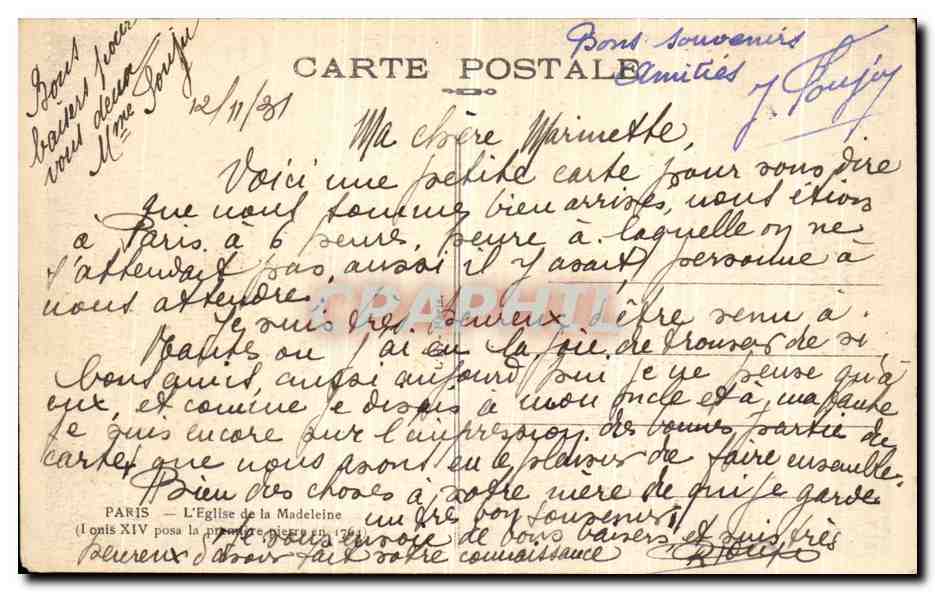 Bons
baisers pour
vous deux
Mme Souju
Bons souvenirs
Amitiés
CARTE POSTALE
12/11/31
Ma chère Marinette,
Voici une petite carte pour vous dire
que nous sommes bien arrivés, nous étions
à Paris à 6 heures, heure à laquelle on ne
n'attendait pas, aussi il y avait personne à
nous attendre.
Je suis très heureux d'être venu à
Nantes ou j'ai eu la joie de trouver de si
bons amis, aussi aujourd'hui je ne pense qu'à
eux, et comme je disais à mon oncle et à ma tante
je suis encore sur l'impression des bonnes partie de
cartes que nous avons eu le plaisir de faire ensemble.
Bien des choses à votre mère de qui je garde
un très bon souvenir,
Je vous envoie de bons baisers et suis très
heureux d'avoir fait votre connaissance
PARIS — L'Eglise de la Madeleine
(Louis XIV posa la première pierre en 1764)
CPAPHIL